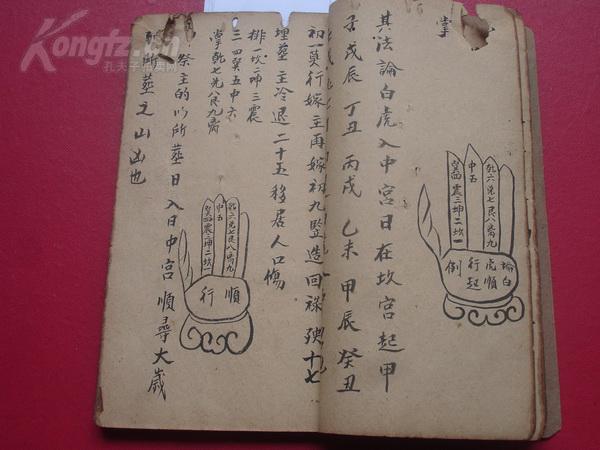 掌
其法論白虎入中宮日在坎宮起甲
子戊辰 丁丑 丙戌 乙未 甲辰 癸丑
離九 艮八 兌七 乾六
中五
巽四 震三 坤二 坎一
論白虎順行起例
初一莫行嫁主再嫁初九豎造回祿殃十七
埋葬主冷退二十五移居人口傷
排一坎二坤三震
三四巽五中六
掌乾七兌八艮九离
祭主的以所葬日入日中宮順尋大歲
所葬之山凶也
乾六兌七艮八离九
中五
巽四震三坤二坎一
順行
Kongfz.com
孔夫子旧书网